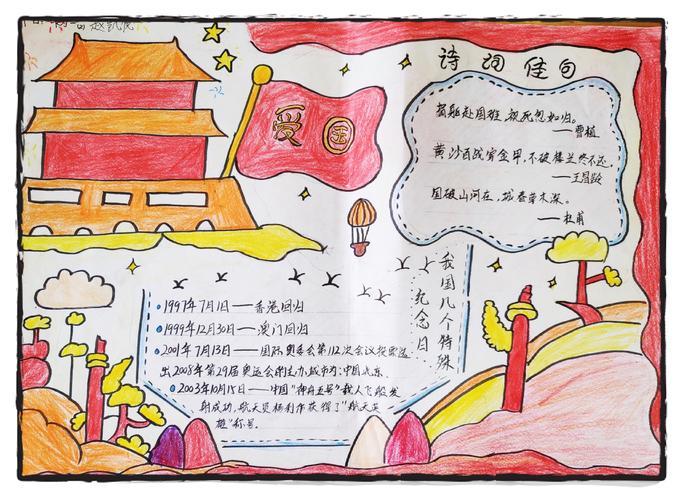 爱国
诗词佳句
捐躯赴国难,视死忽如归。
——曹植
黄沙百战穿金甲,不破楼兰终不还。
——王昌龄
国破山河在,城春草木深。
——杜甫
我国几个特殊
纪念日
1997年7月1日——香港回归
1999年12月30日——澳门回归
2001年7月13日——国际奥委会第112次会议投票选
出2008年第29届奥运会的主办城市为:中国北京
2003年10月15日——中国"神舟五号"载人飞船发
射成功,航天员杨利伟获得了"航天英
雄"称号。